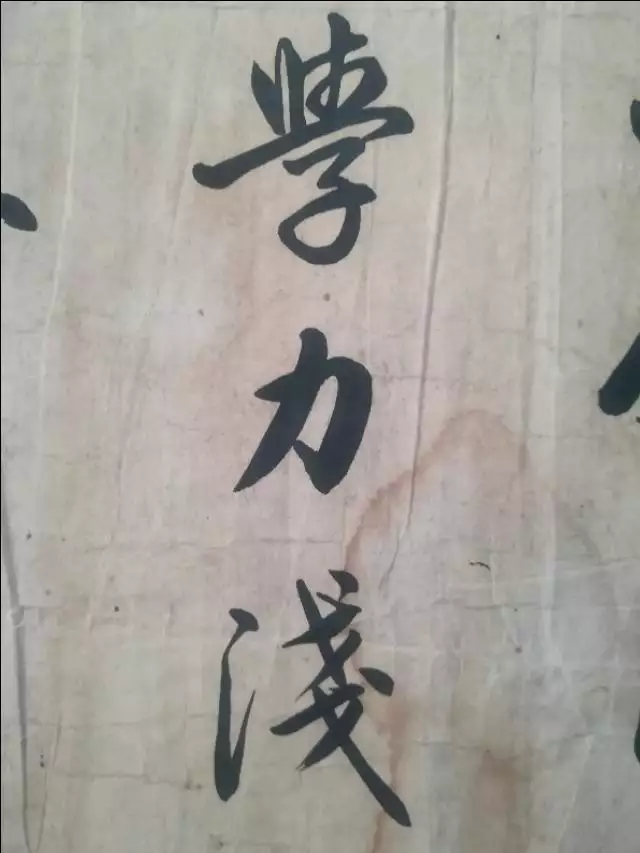 學力淺